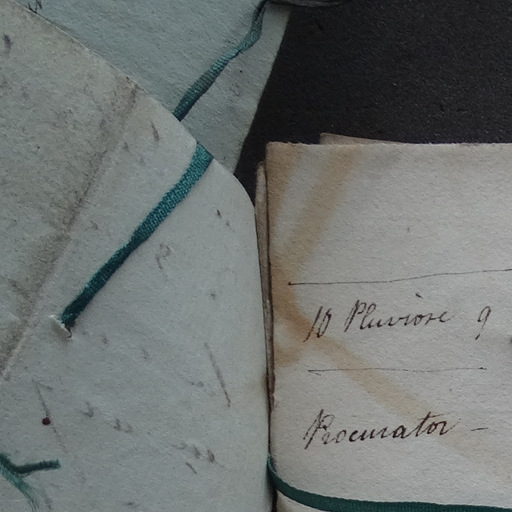 10 Pluviose 9
Procurator -